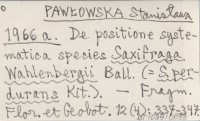 PAWŁOWSKA Stanisława
1966 a. De positione syste-
matica species Saxifraga
Wahlenbergii Ball. (= S. per-
durans Kit.). — Fragm.
Flor. et Geobot. 12 (4): 337-347.